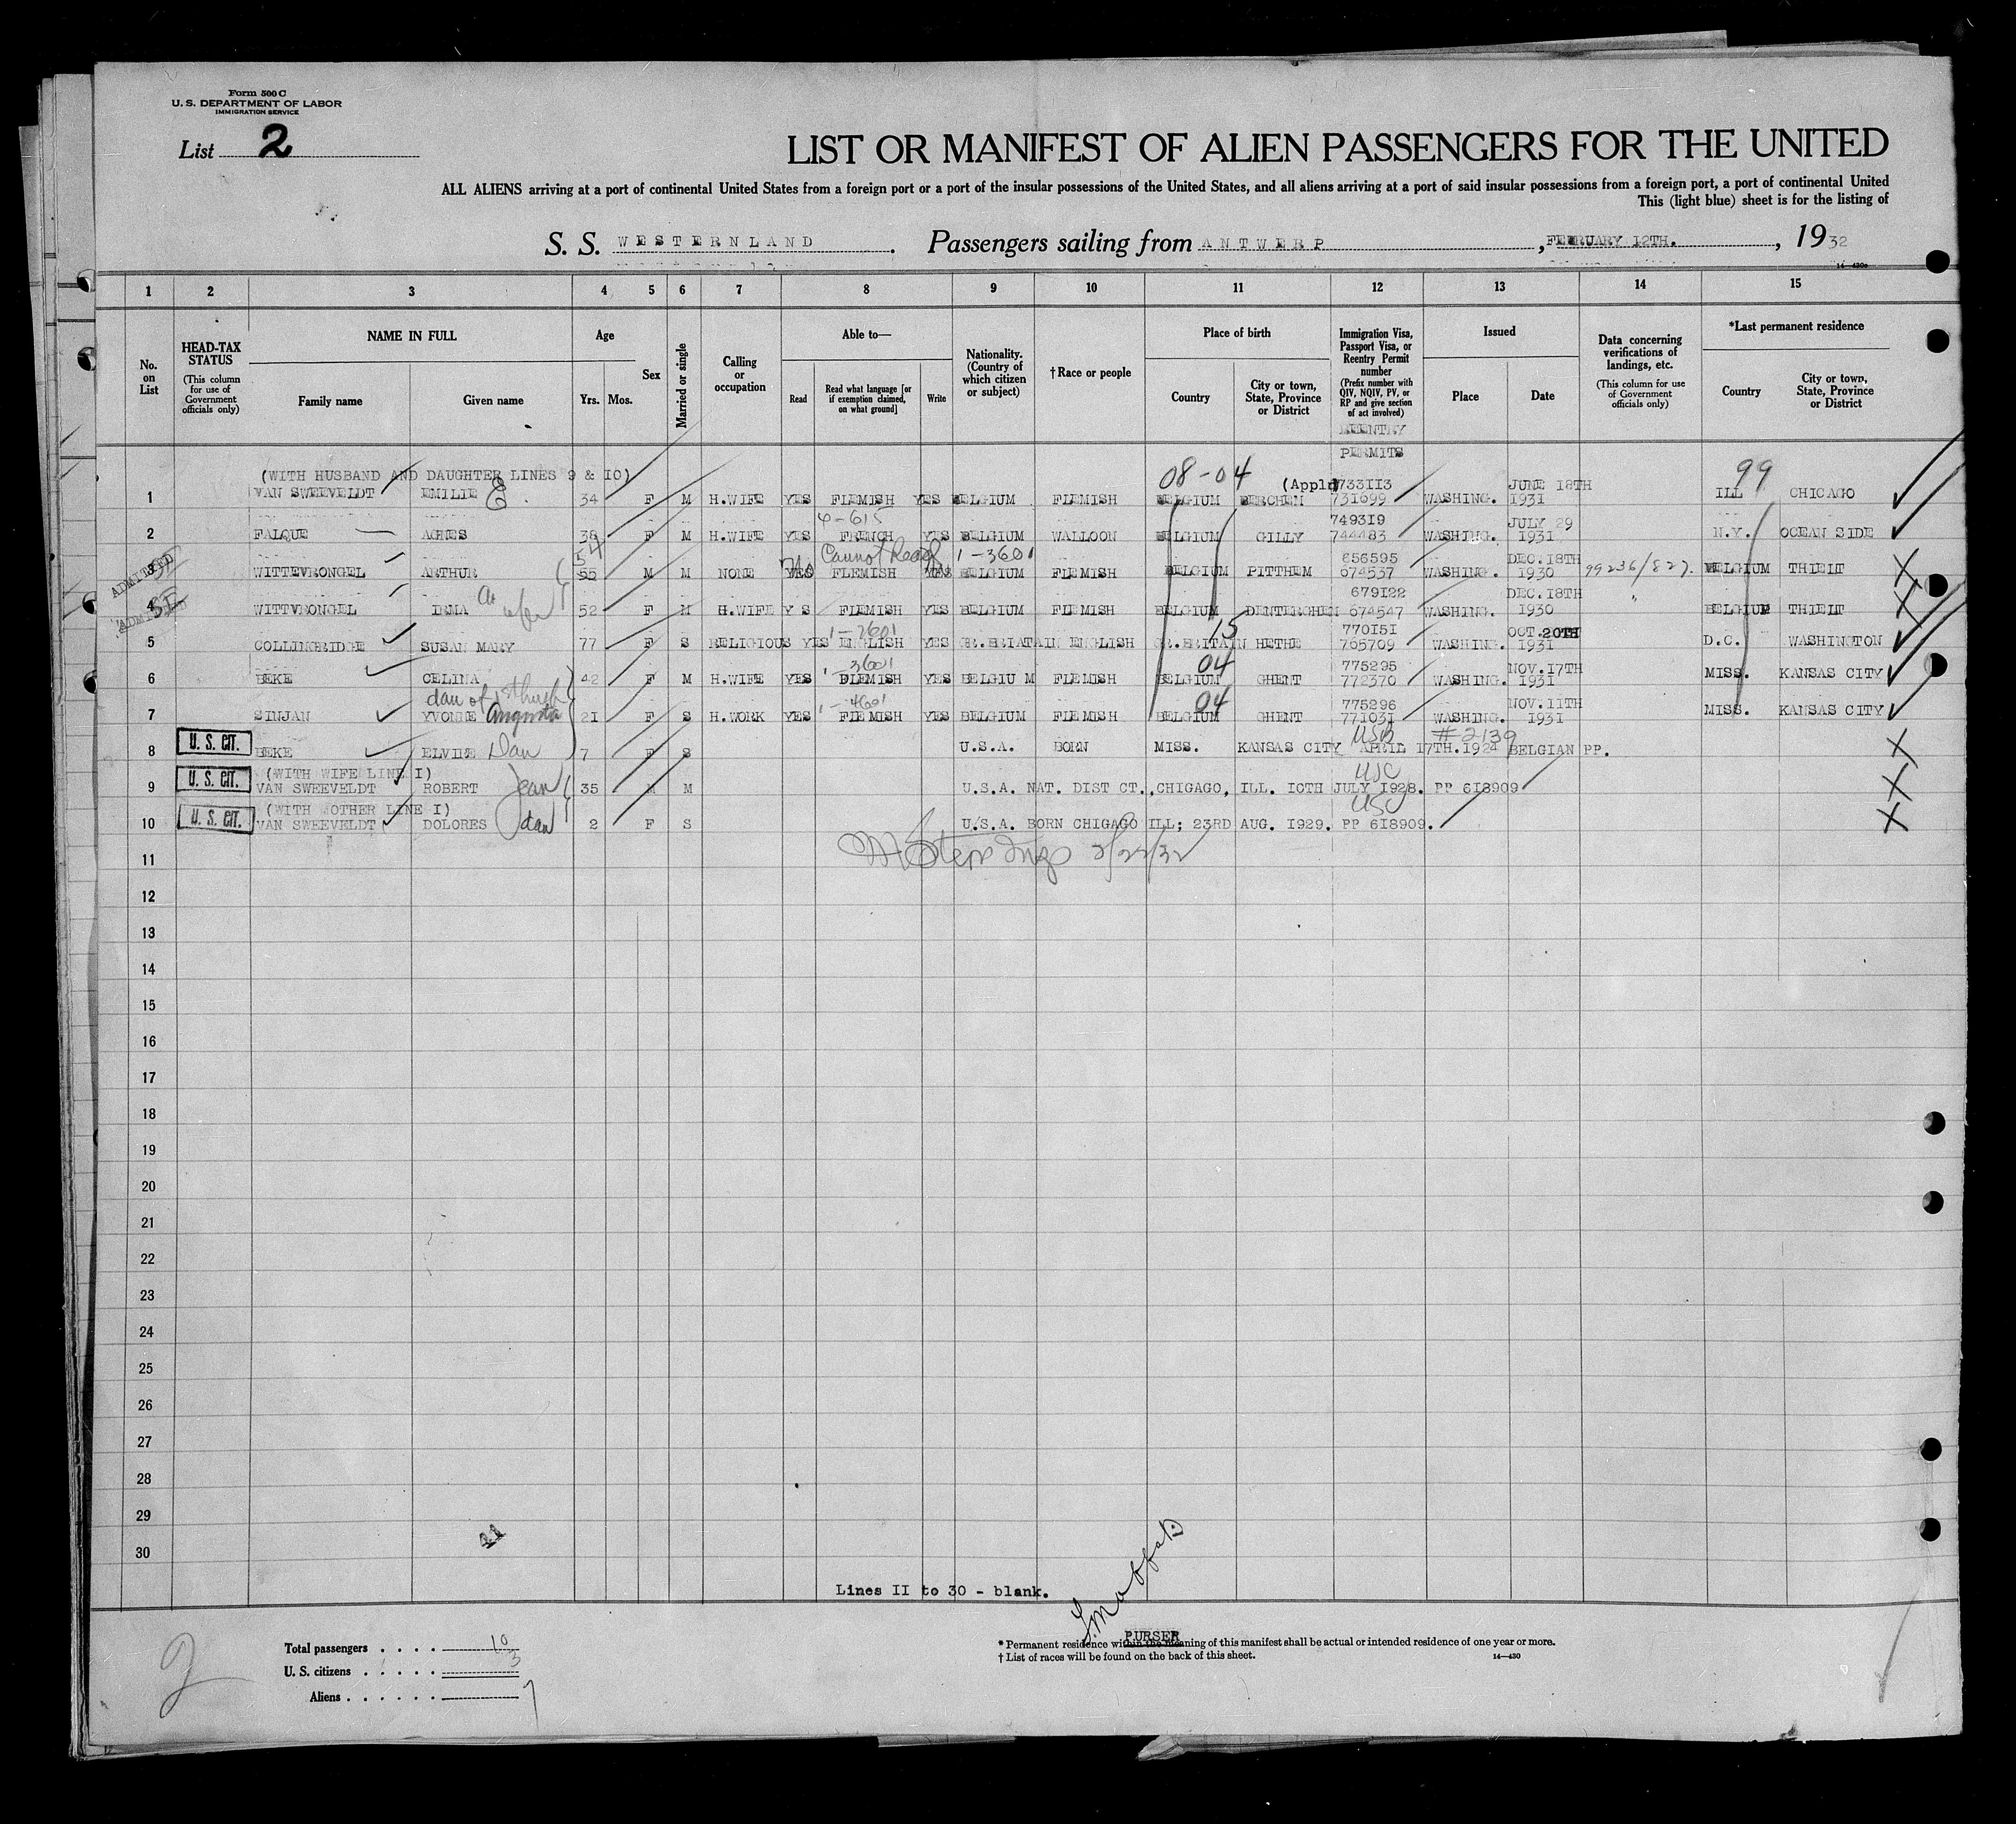 Form 500 C
U. S. DEPARTMENT OF LABOR
IMMIGRATION SERVICE
List 2
LIST OR MANIFEST OF ALIEN PASSENGERS FOR THE UNITED
ALL ALIENS arriving at a port of continental United States from a foreign port or a port of the insular possessions of the United States, and all aliens arriving at a port of said insular possessions from a foreign port, a port of continental United
This (light blue) sheet is for the listing of
S. S. WESTERNLAND. Passengers sailing from ANTWERP, FEBRUARY 12TH., 1932
14—430a
1 2 3 4 5 6 7 8 9 10 11 12 13 14 15
No. on List
HEAD-TAX STATUS (This column for use of Government officials only)
NAME IN FULL Family name Given name
Age Yrs. Mos.
Sex
Married or single
Calling or occupation
Able to— Read Read what language [or if exemption claimed, on what ground] Write
Nationality. (Country of which citizen or subject)
†Race or people
Place of birth Country City or town, State, Province or District
Immigration Visa, Passport Visa, or Reentry Permit number (Prefix number with QIV, NQIV, PV, or RP and give section of act involved)
REENTRY PERMITS
Issued Place Date
Data concerning verifications of landings, etc. (This column for use of Government officials only)
*Last permanent residence Country City or town, State, Province or District
(WITH HUSBAND AND DAUGHTER LINES 9 & 10) 08-04 (Appln 733113 JUNE 18TH 99
1 VAN SWEEVELDT EMILIE E. 34 F M H.WIFE YES FLEMISH YES BELGIUM FLEMISH BELGIUM BERCHEM 731699 WASHING. 1931 ILL CHICAGO
4-615 749319 JULY 29
2 FALQUE AGNES 38 F M H.WIFE YES FRENCH YES BELGIUM WALLOON BELGIUM GILLY 744483 WASHING. 1931 N.Y. OCEAN SIDE
ADMITTED 54 No Cannot Read 1-3601 656595 DEC.18TH
3 WITTEVRONGEL ARTHUR 55 M M NONE YES FLEMISH YES BELGIUM FLEMISH BELGIUM PITTHEM 674537 WASHING. 1930 99236/827. BELGIUM THIELT
ADMITTED wife 679122 DEC.18TH
4 WITTVRONGEL IRMA 52 F M H.WIFE Y S FLEMISH YES BELGIUM FLEMISH BELGIUM DENTERGHEM 674547 WASHING. 1930 " BELGIUM THIELT
1-2601 15 770151 OCT.20TH
5 COLLINGRIDGE SUSAN MARY 77 F S RELIGIOUS YES ENGLISH YES GR.BRIATAIN ENGLISH GR.BRITAIN HETHE 765709 WASHING. 1931 D.C. WASHINGTON
1-3601 04 775295 NOV.17TH
6 BEKE CELINA 42 F M H.WIFE YES FLEMISH YES BELGIU M FLEMISH BELGIUM GHENT 772370 WASHING. 1931 MISS. KANSAS CITY
dau of 1st husb 1-4601 04 775296 NOV.11TH
7 SINJAN YVONNE Augusta 21 F S H.WORK YES FLEMISH YES BELGIUM FLEMISH BELGIUM GHENT 771031 WASHING. 1931 MISS. KANSAS CITY
USB #2139
8 U. S. CIT. BEKE ELVINE Dau 7 F S U.S.A. BORN MISS. KANSAS CITY APRIL 17TH.1924 BELGIAN PP.
(WITH WIFE LINE I) USC
9 U. S. CIT. VAN SWEEVELDT ROBERT Jean 35 M M U.S.A. NAT. DIST CT., CHIGAGO, ILL. IOTH JULY 1928. PP 618909
(WITH MOTHER LINE I) USC
10 U. S. CIT. VAN SWEEVELDT DOLORES dau 2 F S U.S.A. BORN CHIGAGO ILL; 23RD AUG. 1929. PP 618909.
11 2/22/32
12
13
14
15
16
17
18
19
20
21
22
23
24
25
26
27
28
29
30
Lines II to 30 - blank.
PURSER
Total passengers . . . . 10
U. S. citizens . . . . . 3
Aliens . . . . . . 7
2
* Permanent residence within the meaning of this manifest shall be actual or intended residence of one year or more.
† List of races will be found on the back of this sheet.
14—430